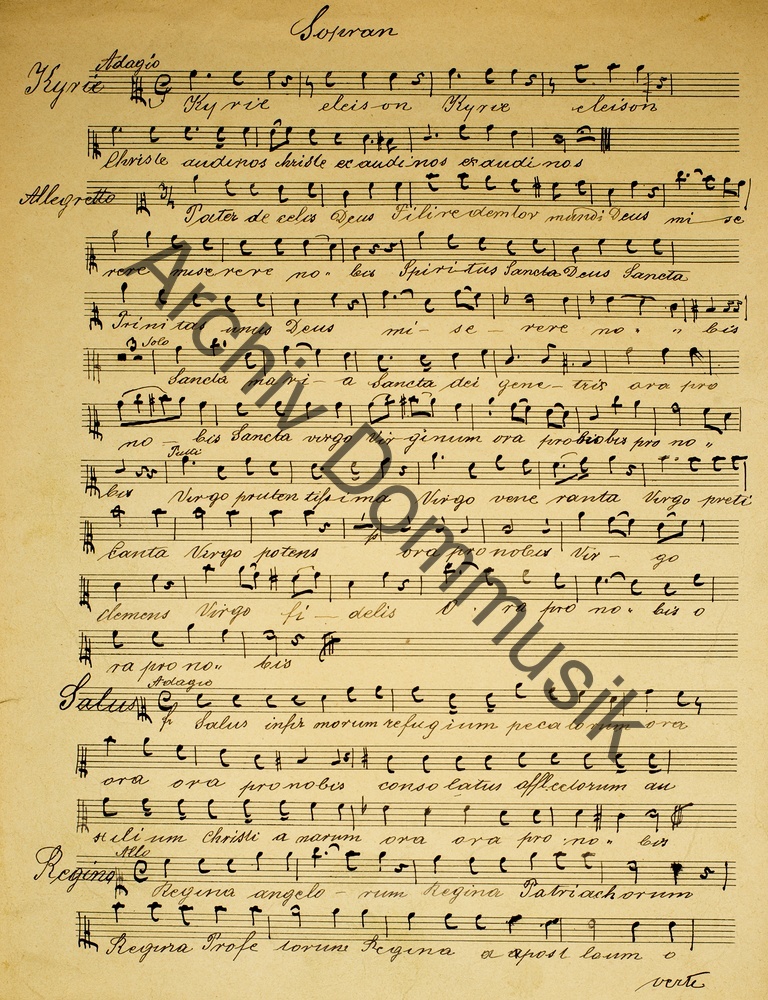 Sopran
Adagio
Kyrie
Kyrie eleison Kyrie eleison
Christe audinos christe exaudi nos exaudi nos
Allegretto
Pater de celis Deus Fili redemtor mundi Deus mi se
rere miserere no bis Spiritus Sancta Deus Sancta
Trinitas unus Deus mi- se- rere no " " bis
3 Solo
Sancta mari- a Sancta dei gene- trix ora pro
no - bis Sancta virgo Vir-ginum ora pro nobis pro no "
Tutti
bis Virgo pruten tissima Virgo vene ranta Virgo preti
canta Virgo potens ora pro nobis Vir- go
clemens Virgo fi - delis O ra pro no " bis o
ra pro no " bis
Adagio
Salus
Salus infir morum refugium pecatorum ora
ora ora pro nobis conso latus afflectorum au
xilium Christi a narum ora ora pro no " bis
Allo
Regina
Regina angelo - rum Regina Patriachorum
Regina Profe torum Regina a apost loum o
verte
Archiv Dommusik